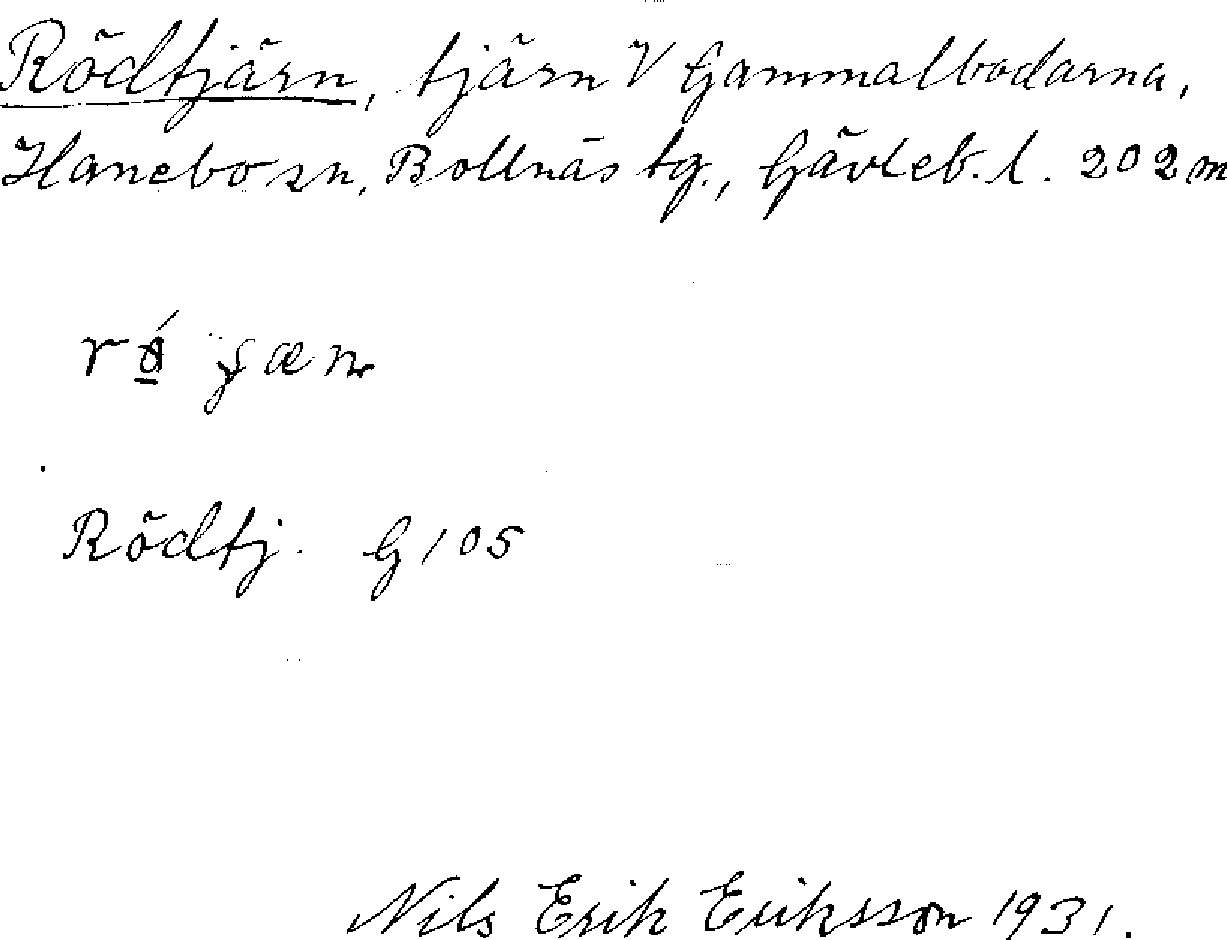 Rödtjärn, tjärn V Gammalbodarna,
Hanebo sn, Bollnäs tg., Gävleb. l. 202 m
Rödtj. G 105
Nils Erik Eriksson 1931.